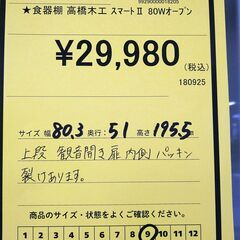 9929000018205
★食器棚 高橋木工 スマートⅡ 80Wオープン
¥29,980
(税込)
180925
サイズ 幅 80.3 奥行: 51 高さ 195.5
上段 観音開き扉 内側パッキン
裂けあります。
商品のサイズ・状態をよくご確認ください。
1 2 3 4 5 6 7 8 9 10 11 12